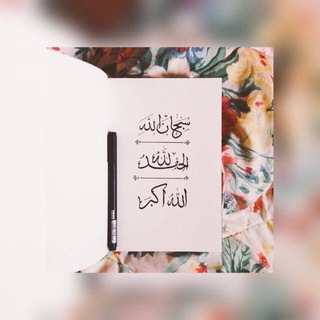 سبحان الله
الحمد لله
الله اكبر